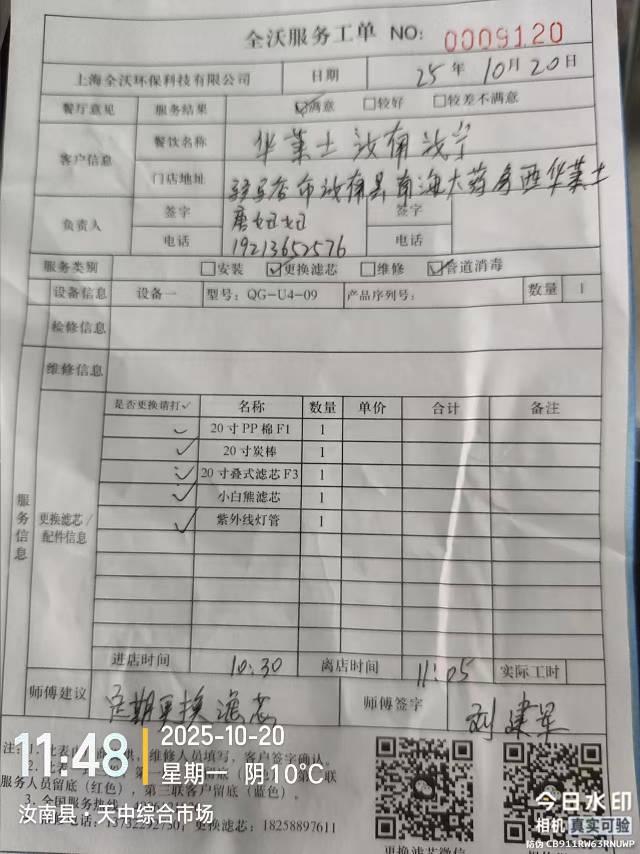 全沃服务工单 NO: 0009120
上海全沃环保科技有限公司 日期 25年10月20日
餐厅意见 服务结果 ☑满意 □较好 □较差不满意
客户信息 餐饮名称 华莱士汝南汝宁
门店地址 驻马店市汝南县南海大药房西华莱士
负责人 签字 唐妞妞 签字
电话 19213652576 电话
服务类别 □安装 ☑更换滤芯 □维修 ☑管道消毒
设备信息 设备一 型号：QG-U4-09 产品序列号： 数量 1
检修信息
维修信息
服务信息
更换滤芯/配件信息
是否更换请打✓ 名称 数量 单价 合计 备注
✓ 20寸PP棉F1 1
✓ 20寸炭棒 1
✓ 20寸叠式滤芯F3 1
✓ 小白熊滤芯 1
✓ 紫外线灯管 1
进店时间 10:30 离店时间 11:05 实际工时
师傅建议 定期更换滤芯 师傅签字 刘建军
维修人员填写，客户签字确认。
服务人员留底（红色），第三联客户留底（蓝色）。
更换滤芯：18258897611
更换滤芯微信
11:48 2025-10-20
星期一 阴 10℃
汝南县·天中综合市场
今日水印
相机 真实可验
防伪 CB911RW63RNUWP